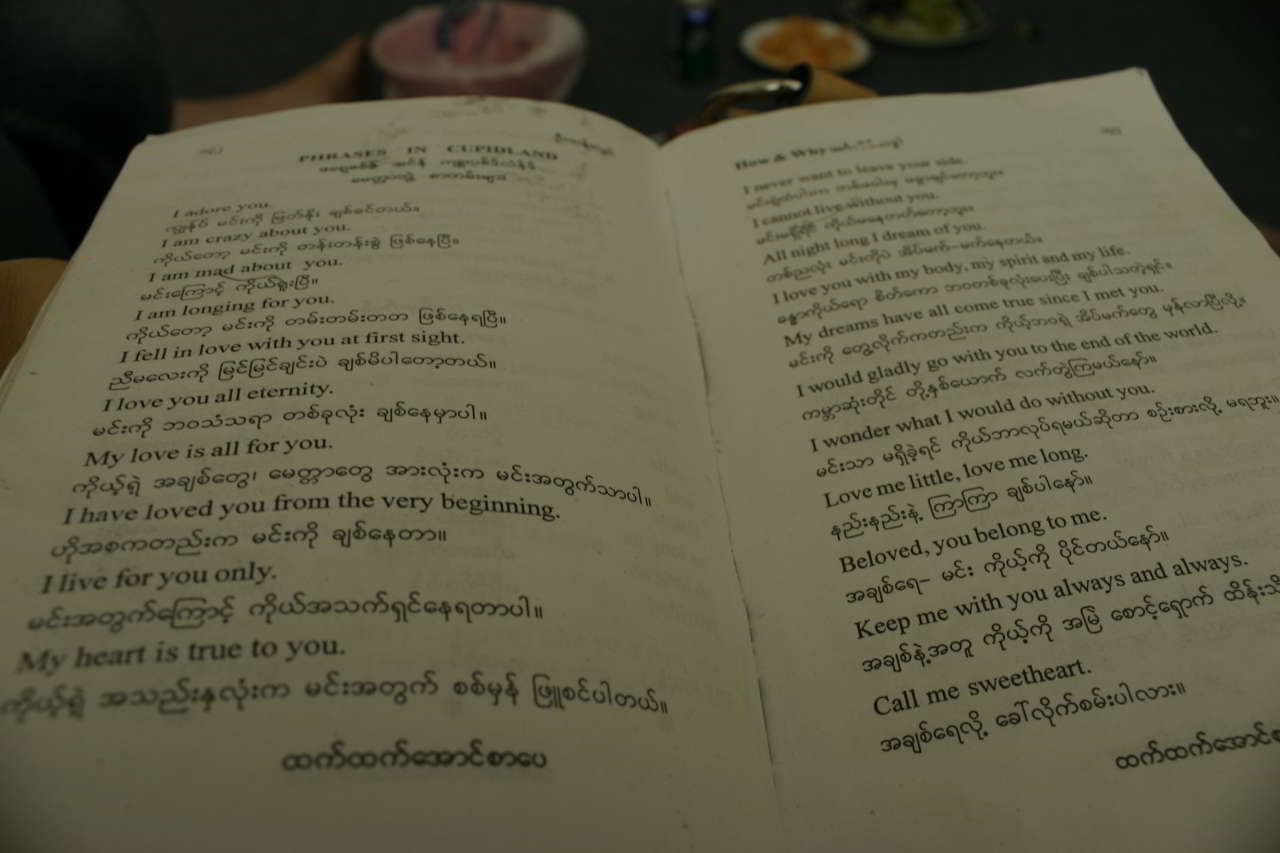 PHRASES IN CUPIDLAND
မေတ္တာဖွဲ့ စာတမ်းများ
I adore you.
ကျွန်ုပ် မင်းကို မြတ်နိုး ချစ်ခင်တယ်။
I am crazy about you.
ကိုယ်တော့ မင်းကို တန်းတန်းစွဲ ဖြစ်နေပြီ။
I am mad about you.
မင်းကြောင့် ကိုယ်ရူးပြီ။
I am longing for you.
ကိုယ်တော့ မင်းကို တမ်းတမ်းတတ ဖြစ်နေရပြီ။
I fell in love with you at first sight.
ညီမလေးကို မြင်မြင်ချင်းပဲ ချစ်မိပါတော့တယ်။
I love you all eternity.
မင်းကို ဘဝသံသရာ တစ်ခုလုံး ချစ်နေမှာပါ။
My love is all for you.
ကိုယ့်ရဲ့ အချစ်တွေ၊ မေတ္တာတွေ အားလုံးက မင်းအတွက်သာပါ။
I have loved you from the very beginning.
ဟိုအစကတည်းက မင်းကို ချစ်နေတာ။
I live for you only.
မင်းအတွက်ကြောင့် ကိုယ်အသက်ရှင်နေရတာပါ။
My heart is true to you.
ကိုယ့်ရဲ့ အသည်းနှလုံးက မင်းအတွက် စစ်မှန် ဖြူစင်ပါတယ်။
ထက်ထက်အောင်စာပေ
How & Why
I never want to leave your side.
I cannot live without you.
မင်းမရှိရင် ကိုယ်မနေတတ်တော့ဘူး။
All night long I dream of you.
တစ်ညလုံး မင်းကိုပဲ အိပ်မက်-မက်နေတယ်။
I love you with my body, my spirit and my life.
ခန္ဓာကိုယ်ရော စိတ်ကော ဘဝတစ်ခုလုံးပေးပြီး ချစ်ပါသတဲ့ရှင်။
My dreams have all come true since I met you.
မင်းကို တွေ့လိုက်ကတည်းက ကိုယ့်ဘဝရဲ့ အိပ်မက်တွေ မှန်လာပြီလို့။
I would gladly go with you to the end of the world.
ကမ္ဘာဆုံးတိုင် တို့နှစ်ယောက် လက်တွဲကြမယ်နော်။
I wonder what I would do without you.
မင်းသာ မရှိခဲ့ရင် ကိုယ်ဘာလုပ်ရမယ်ဆိုတာ စဉ်းစားလို့ မရဘူး။
Love me little, love me long.
နည်းနည်းနဲ့ ကြာကြာ ချစ်ပါနော်။
Beloved, you belong to me.
အချစ်ရေ– မင်း ကိုယ့်ကို ပိုင်တယ်နော်။
Keep me with you always and always.
အချစ်နဲ့အတူ ကိုယ့်ကို အမြဲ စောင့်ရှောက်
Call me sweetheart.
အချစ်ရေလို့ ခေါ်လိုက်စမ်းပါလား။